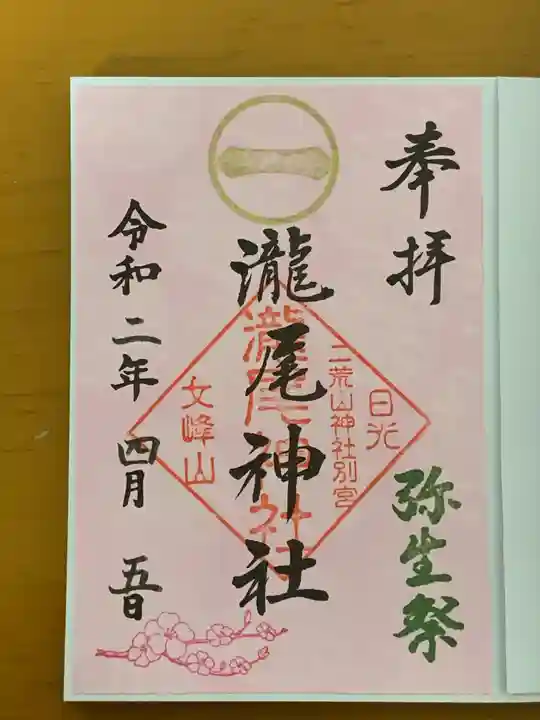 奉拝
弥生祭
一
瀧尾神社
日光
二荒山神社別宮
瀧尾神社
女峰山
令和二年 四月 五日